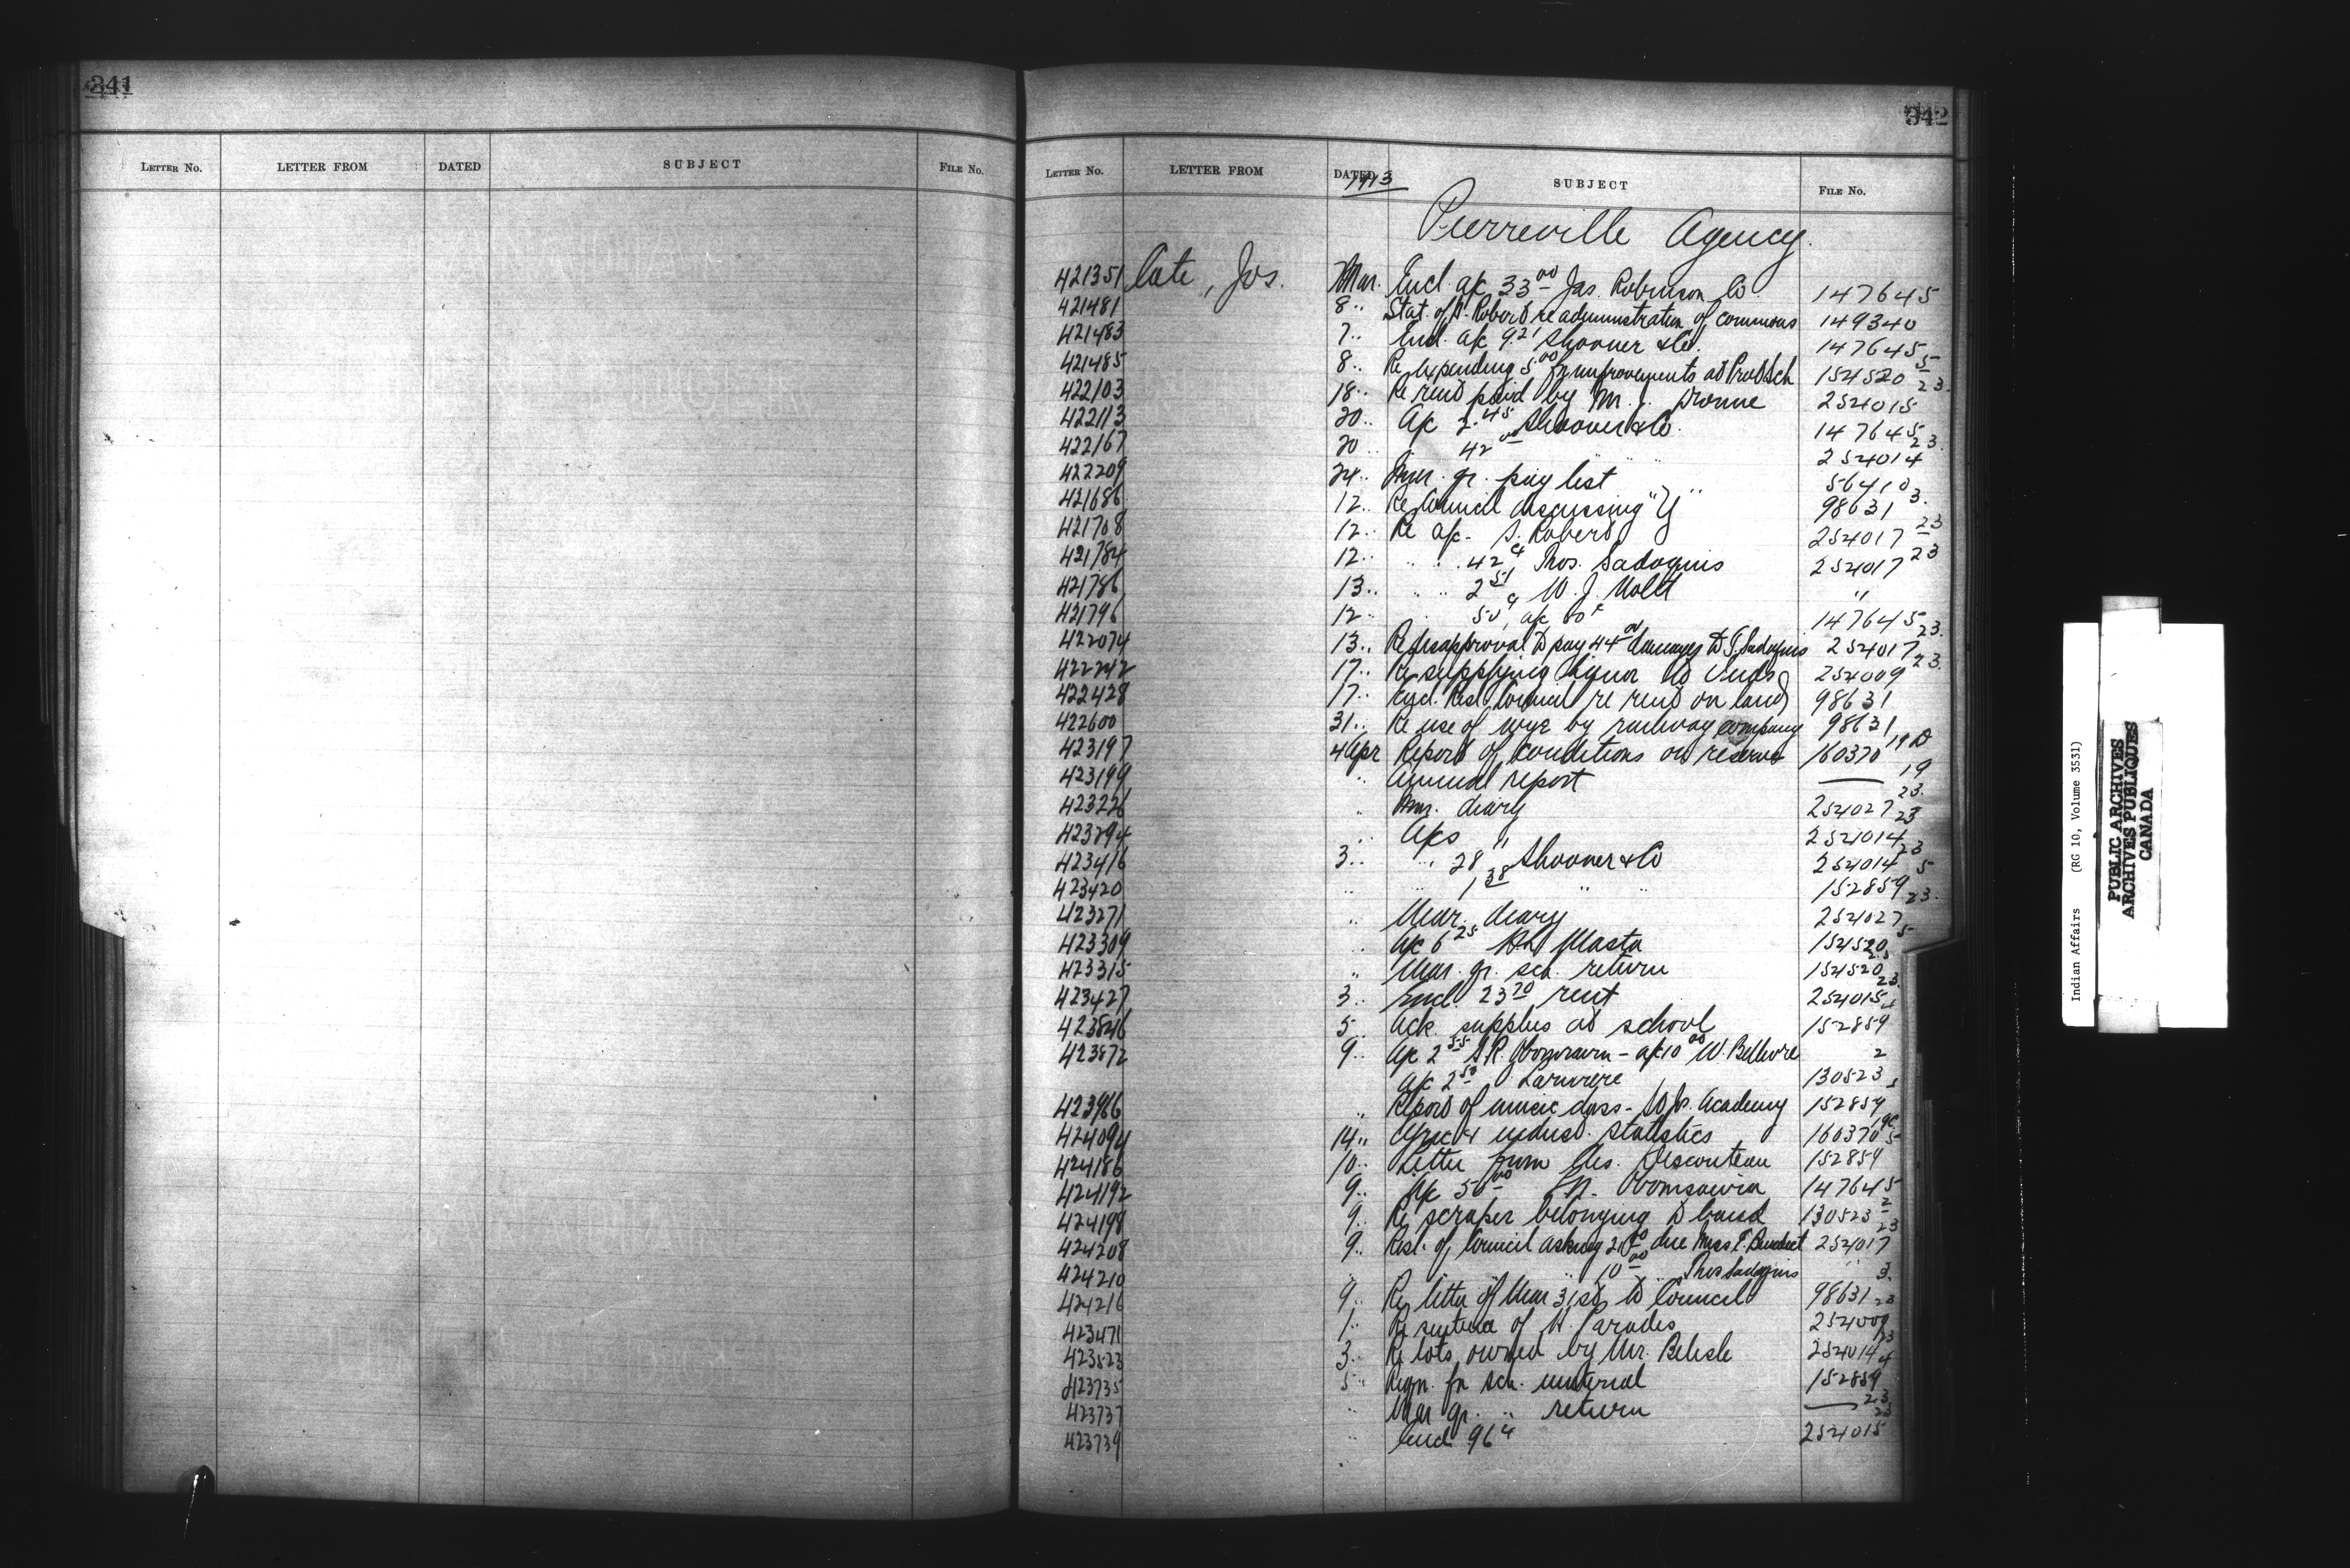 341
LETTER No. LETTER FROM DATED SUBJECT FILE No.
342
LETTER No. LETTER FROM DATED SUBJECT FILE No.
1913
Pierreville Agency.
421351 Cote, Jos. Mar. Encl a/c 33 00 Jas. Robinson Co 147645
421481 8 " Stat. of Robert re administration of commons 149340
421483 7 " Encl. a/c 9.21 Shooner & Co. 147645
421485 8 " Re expending 5 00 for improvements at Prot Sch 154520 5
422103 18 " Re rent paid by M. J. 254015 23
422113 20 " A/c 2.45 Shooner & Co. 147645
422167 20 " " 42 00 " " 254014 23
422209 24 " qr. pay list 56410
421686 12 " Re Council discussing "Y" 98631 3.
421708 12 " Re a/c - S. Robert 254017 23
421784 12 " " " 42 c Thos. Sadoques 254017 23
421786 13 " " " 2 51 W. J. Watt "
421796 12 " 50 c, a/c 80 c 147645
422074 13 " Re disapproval to pay 44 00 damages to T. Sadoques 254017 23
422242 17 " Re supplying liquor to Inds 254009 23
422428 17 " Encl. Resl. Council re rent on land 98631
422600 31 " Re use of wye by railway company 98631
423197 4 Apr Report of conditions on reserve 160370 19 D
423199 " Annual report —— 19
423226 " Mar. diary 254027 23
423294 " A/cs " 254014 23
423416 3 " " 28 Shooner & Co 254014 23
423420 " " 1 38 " " 152859 5
423271 " Mar. diary 254027 23
423309 " A/c 6 25 Masta 154520 5
423315 " Mar. qr. sch. return 154520
423427 3 " Encl. 23 70 rent 254015 23
423846 5 " Ack. supplies at school 152859
423872 9 " A/c 2 55 S. R. Obomsawin - a/c 10 00 W. Bellvire 2
a/c 2 50 Lariviere 130523
423966 " Report of music class - Academy 152859
424094 14 " Agric & indust. statistics 160370 19C
424186 10 " Letter from Des. 152859 5
424192 9 " A/c 50 00 N. Obomsawin 147645
424198 9 " Re scraper belonging to band 130523 2
424208 9 " Resl. of Council asking 20 00 due Miss E. Benedict 254017 23
424210 " " " 10 00 " Thos Sadoques "
424216 9 " Re letter of Mar 31st to Council 98631 3.
423471 1 " Re sentence of Paradis 254009 23
423523 3 " Re lots owned by Mr. Belisle 254014 23
423735 5 " Reqn. for sch. material 152859 4
423737 " Mar qr. " return —— 23
423739 " Encl 96 c 254015 23
Indian Affairs (RG 10, Volume 3531)
PUBLIC ARCHIVES
ARCHIVES PUBLIQUES
CANADA